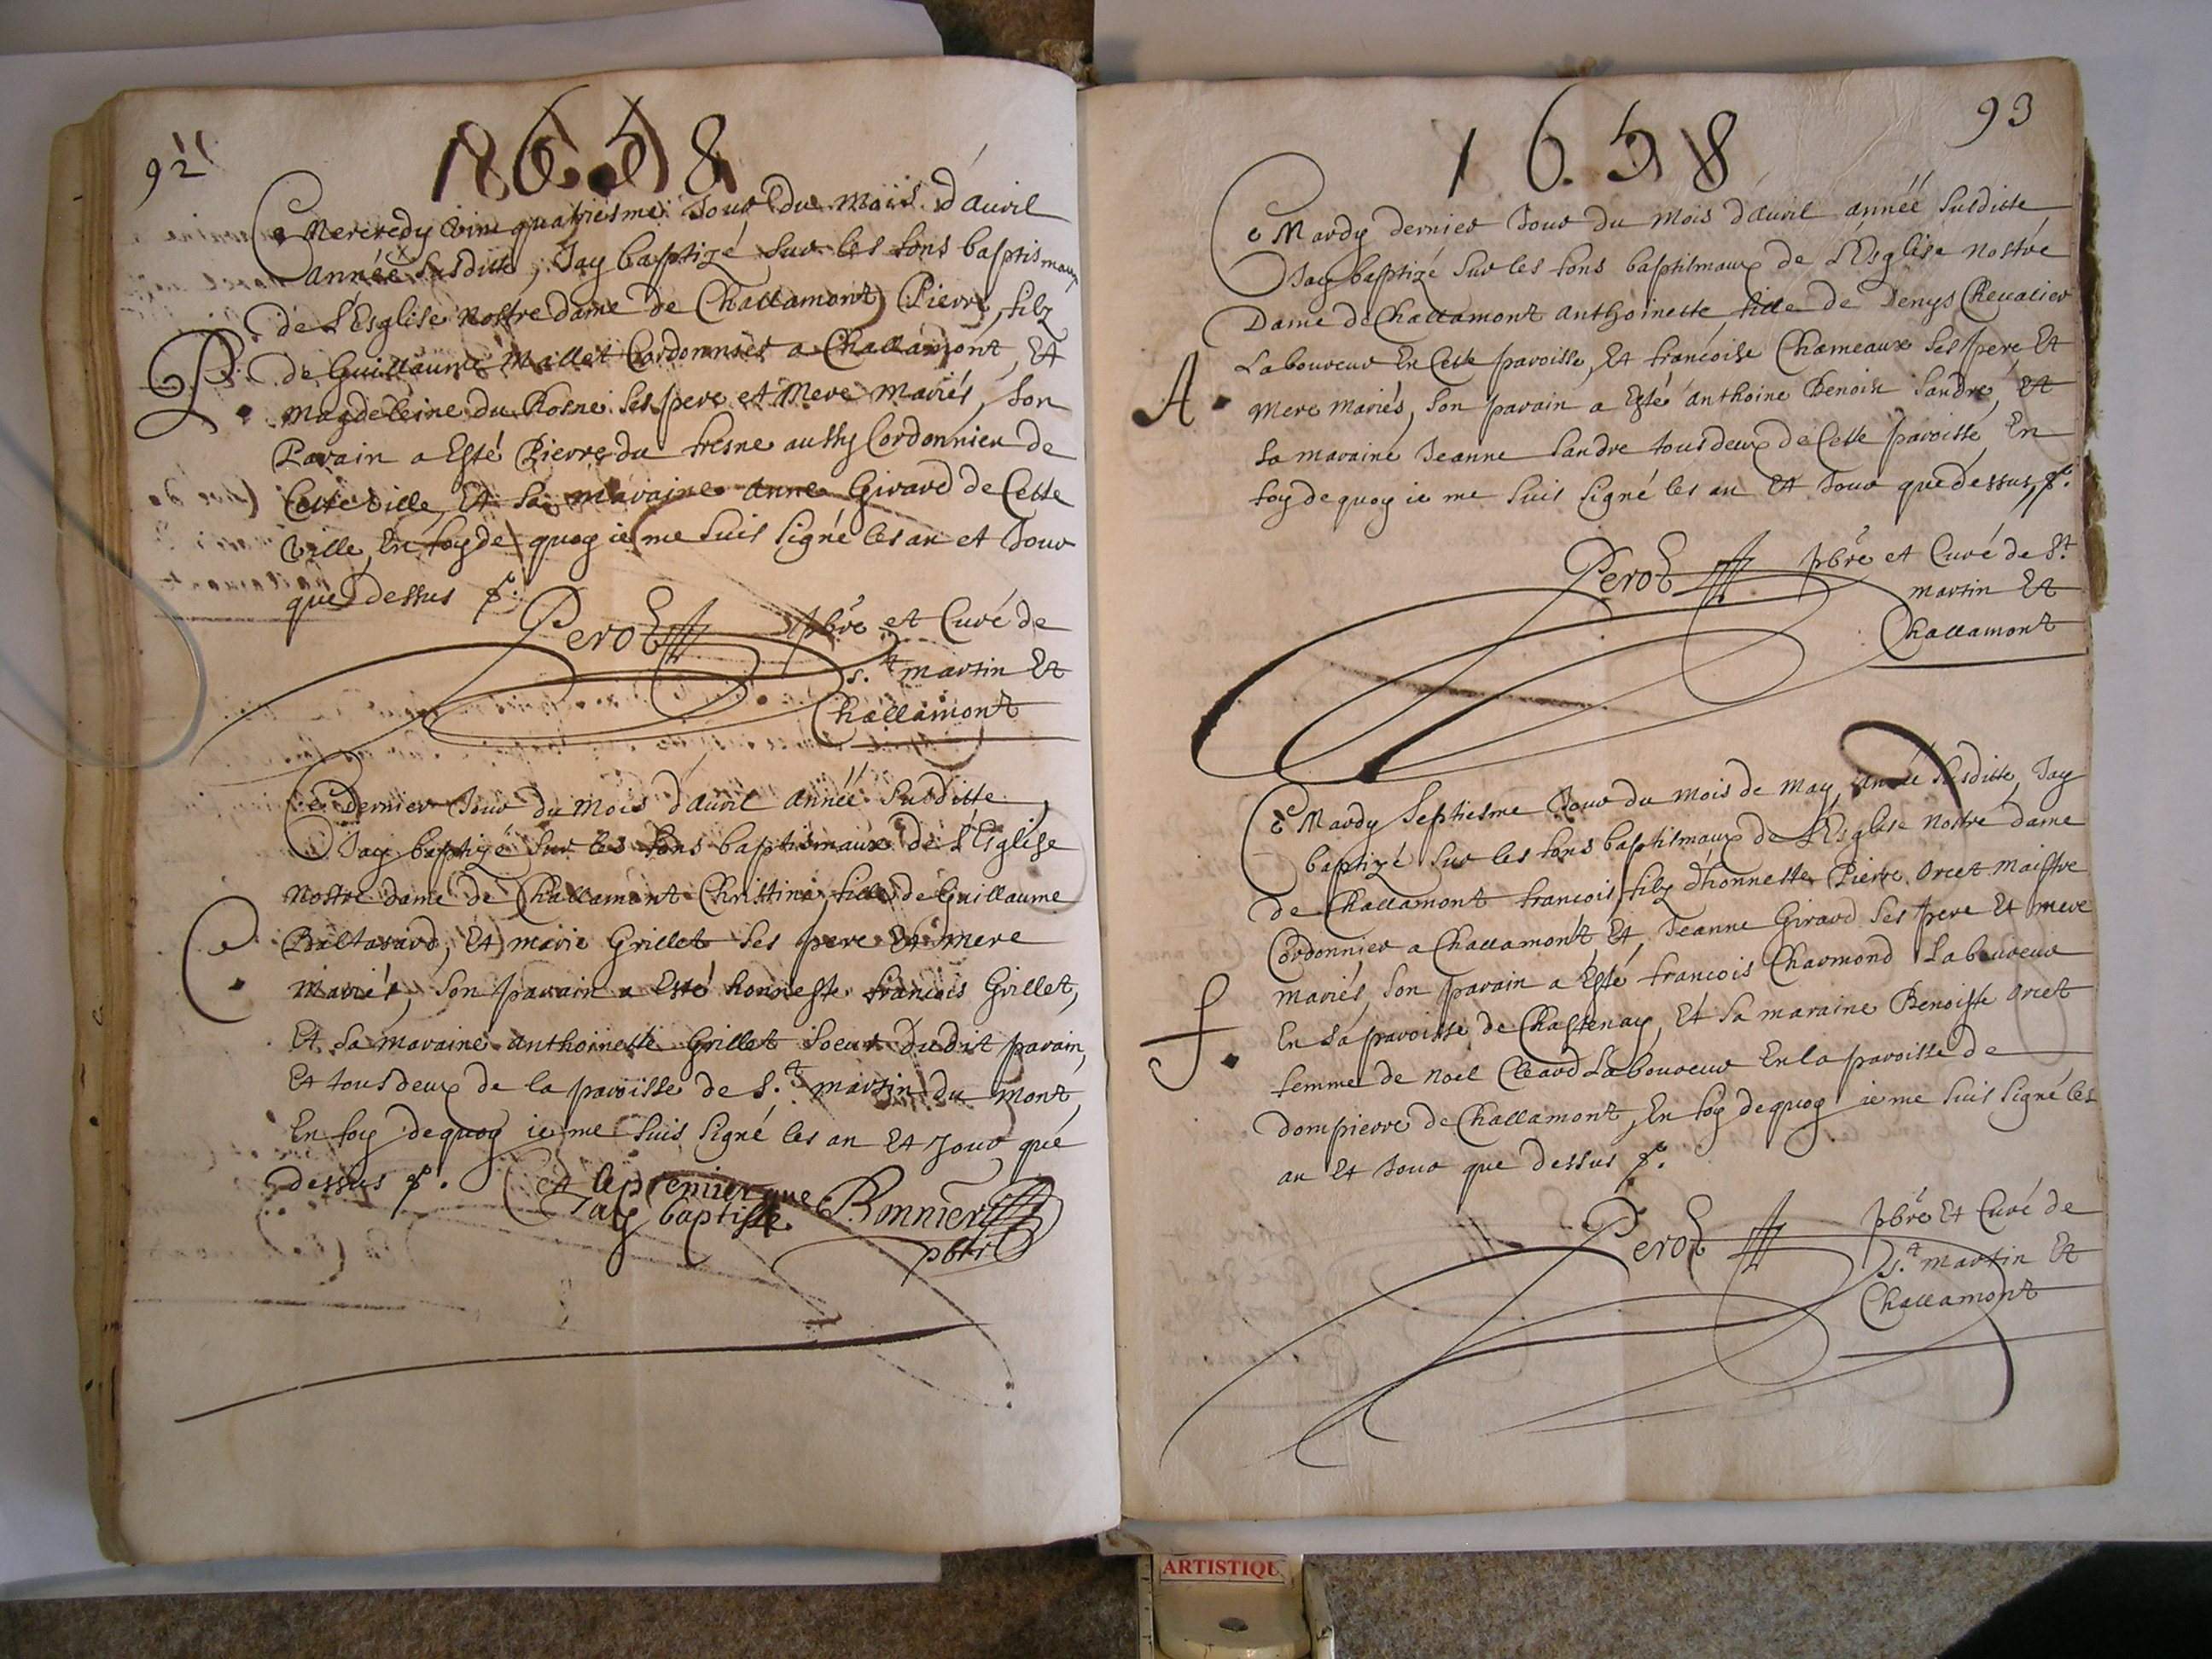 92
1658
Ce Mercredy vint quatriesme Jour du Mois d'Auril
année susditte, Jay baptizé sur les fons baptismaux
de L'Esglise Nostre dame de Challamont Pierre, filz
P.
de Guillaume Mallet Cordonnier a Challamont, Et
Magdeleine du Rosne ses pere et Mere Mariés, Son
Parain a Esté Pierre du fresne aussy Cordonnier de
Ceste ville, Et sa maraine anne Girard de Ceste
ville, En foy de quoy ie me suis signé les an et Jour
que dessus
Perot pbre et Curé de
St. martin Et
Challamont
Ce dernier Jour du Mois d'auril année susditte,
Jay baptizé sur les fons baptismaux de L'Esglise
Nostre dame de Challamont Christine, fille de Guillaume
C.
Baltazard, Et marie Grillet ses pere Et mere
Mariés, Son parain a Esté honneste francois Grillet,
Et sa maraine anthoinette Grillet soeur dudit parain,
Et tous deux de la paroisse de St. martin du Mont,
En foy de quoy ie me suis signé les an Et Jour que
dessus. Et le premier que
Jay baptisse Bonnier
pbre
93
1658
Ce Mardy dernier Jour du Mois d'auril année susditte
Jay baptizé sur les fons baptismaux de L'Esglise Nostre
Dame de Challamont anthoinette, fille de Denys Cheualier
Laboureur En Ceste paroisse, Et francoise Chameaux ses pere Et
A.
Mere Mariés, Son parain a Esté anthoine Benoist Sandre, Et
sa maraine Jeanne Sandre tous deux de Ceste paroisse, En
foy de quoy ie me suis signé les an Et Jour que dessus
Perot pbre et Curé de St.
martin Et
Challamont
Ce Mardy septiesme Jour du mois de May, année susditte, Jay
baptizé sur les fons baptismaux de L'Esglise Nostre dame
de Challamont francois, filz d'honneste Pierre Orcet Maistre
Cordonnier a Challamont Et, Jeanne Girard ses pere Et mere
mariés, son parain a Esté francois Charmond Laboureur
f.
En sa paroisse de Chastenay, Et sa maraine Benoiste Orcet
femme de Noel Cleard Laboureur En la paroisse de
dompierre de Challamont, En foy de quoy ie me suis signé les
an Et Jour que dessus
Perot pbre Et Curé de
St. martin Et
Challamont
ARTISTIQU